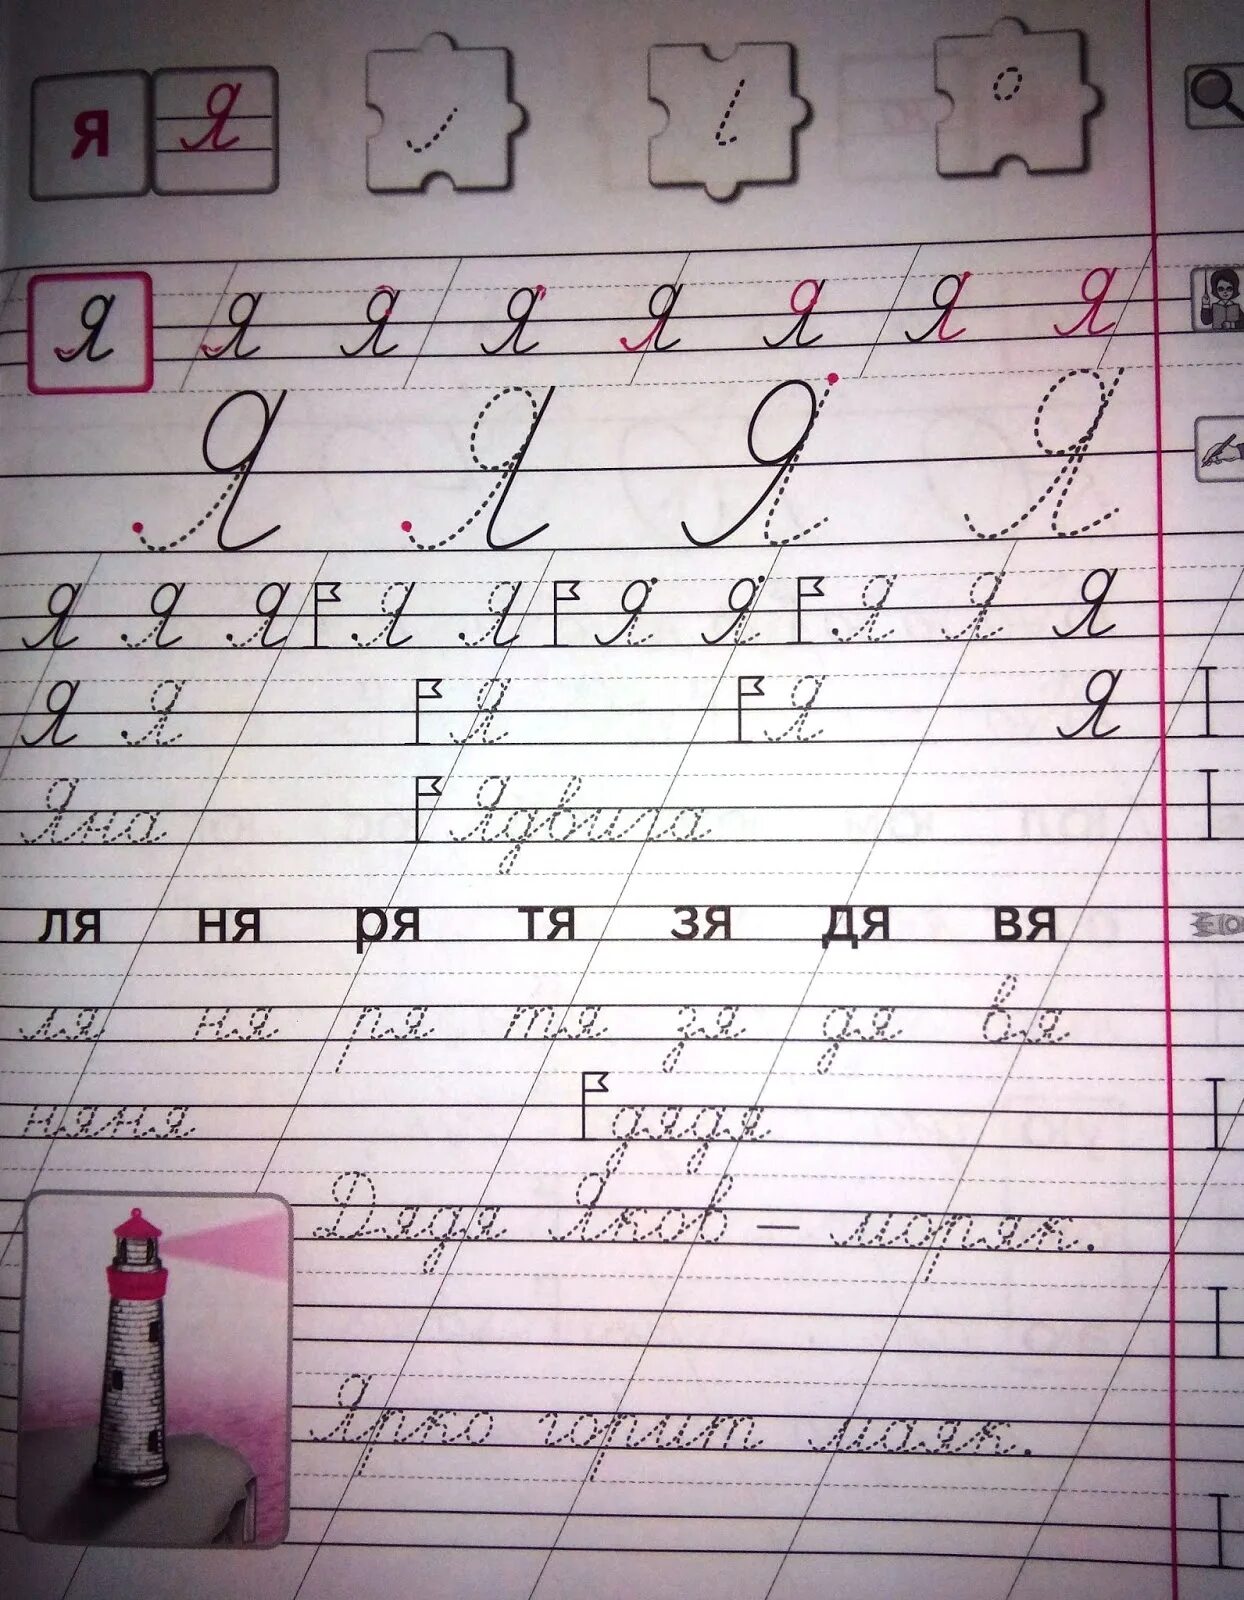 я Я
Я Я Я Я Я Я Я Я
Я Я Я Я
Я Я Я Я Я Я Я Я Я Я
Я Я Я Я Я
Яна Ядвига
ля ня ря тя зя дя вя
ля ня ря тя зя дя вя
няня дядя
Дядя Яков – моряк.
Ярко горит маяк.